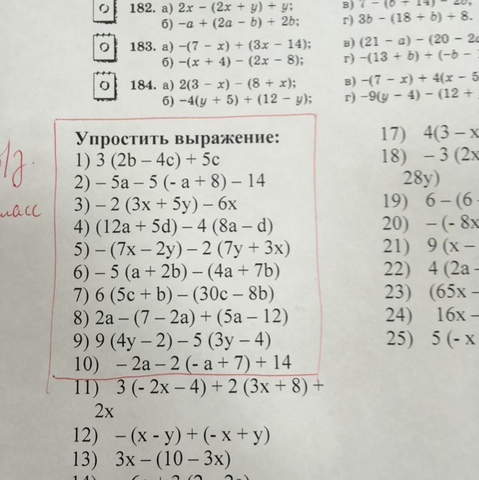 182. а) 2x – (2x + y) + y;
б) –a + (2a – b) + 2b;
г) 3b – (18 + b) + 8.
183. а) –(7 – x) + (3x – 14);
б) –(x + 4) – (2x – 8);
в) (21 – a) – (20 –
184. а) 2(3 – x) – (8 + x);
б) –4(y + 5) + (12 – y);
в) –(7 – x) + 4(x – 5
г) –9(y – 4) – (12 +
Упростить выражение:
1) 3 (2b – 4c) + 5c
2) – 5a – 5 (- a + 8) – 14
3) – 2 (3x + 5y) – 6x
4) (12a + 5d) – 4 (8a – d)
5) – (7x – 2y) – 2 (7y + 3x)
6) – 5 (a + 2b) – (4a + 7b)
7) 6 (5c + b) – (30c – 8b)
8) 2a – (7 – 2a) + (5a – 12)
9) 9 (4y – 2) – 5 (3y – 4)
10) – 2a – 2 (- a + 7) + 14
11) 3 (- 2x – 4) + 2 (3x + 8) +
2x
12) – (x - y) + (- x + y)
13) 3x – (10 – 3x)
17) 4(3 – x
18) – 3 (2x
28y)
19) 6 – (6
20) – (- 8x
21) 9 (x –
22) 4 (2a
23) (65x
24) 16x –
25) 5 (- x